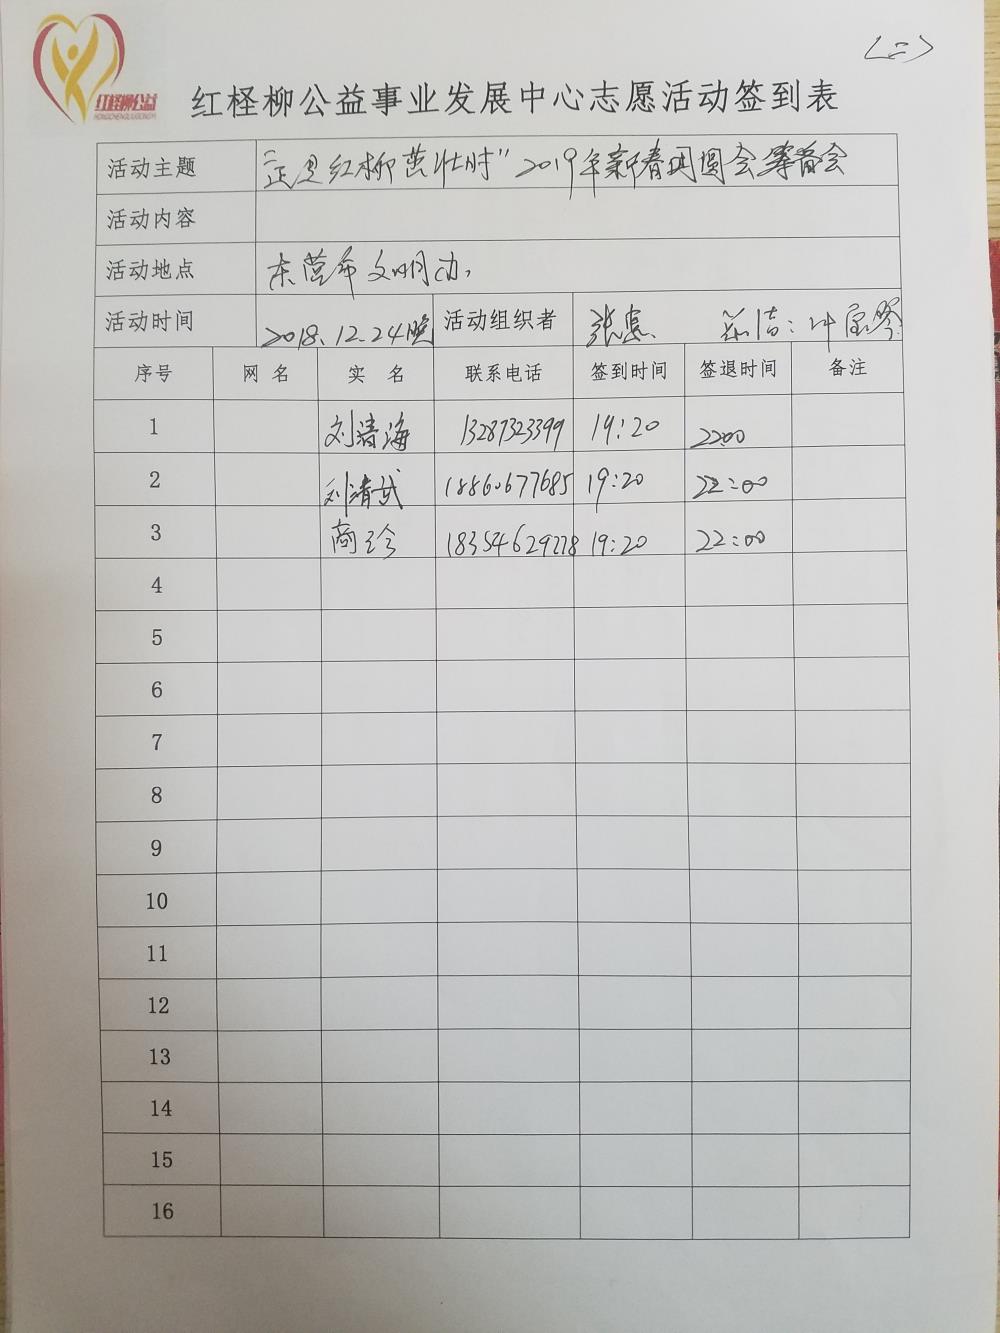 (二)
红柽柳公益
HONGCHENGLIUGONGYI
红柽柳公益事业发展中心志愿活动签到表
活动主题 "正是红柳茁壮时"2019年新春团圆会筹备会
活动内容
活动地点 东营市文明办,
活动时间 2018.12.24晚 活动组织者 张
序号 网 名 实 名 联系电话 签到时间 签退时间 备注
1 刘清海 13287323399 19:20 22:00
2 刘清武 18860677685 19:20 22:00
3 商珍 18354629278 19:20 22:00
4
5
6
7
8
9
10
11
12
13
14
15
16